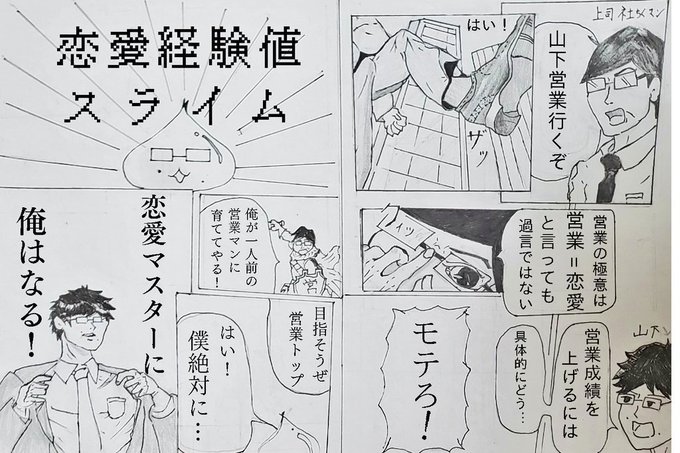 上司 社ちくマン
山下営業行くぞ
はい!
ザッ
営業の極意は
営業=恋愛
と言っても
過言ではない
山下
営業成績を
上げるには
具体的にどう…
モテろ!
恋愛経験値
スライム
俺が一人前の
営業マンに
育ててやる!
目指そうぜ
営業トップ
はい!
僕絶対に…
恋愛マスターに
俺はなる!